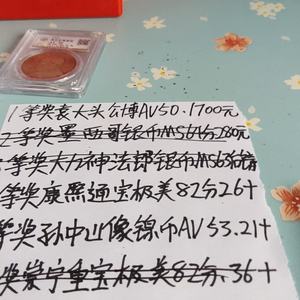 1等奖袁大头公博AU50.1700元
2等奖墨西哥银币MS64分280元
等奖大力神法郎银币MS63
等奖康熙通宝极美82分26+
等奖孙中山像镍币AU53.21+
奖崇宁重宝极美82分.36+